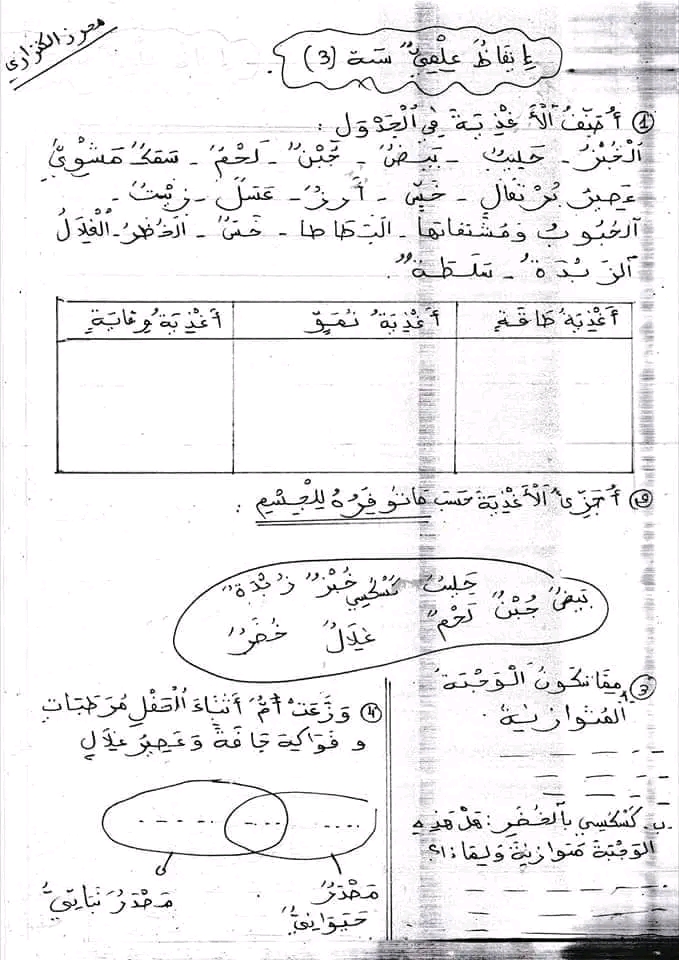 محرز الكنزاري
إِيقَاظٌ عِلْمِيٌّ سنة (3)
① أُصَنِّفُ الْأَغْذِيَةَ فِي الْجَدْوَلِ :
الْخُبْزُ - حَلِيبٌ - بَيْضٌ - جُبْنٌ - لَحْمٌ - سَمَكٌ مَشْوِيٌّ
عَصِيرُ بُرْتقَالٍ - خَسٌّ - أَرزٌ - عَسَلٌ - زَيْتٌ -
الحُبُوبُ وَمُشْتَقاتها - البَطَاطا - خَسٌّ - الخُضَرُ - الْغِلَالُ
الزُبْدَةُ - سَلَطَةٌ
أَغْذِيَةُ طَاقَةٍ أَغْذِيَةُ نُمُوٍّ أَغْذِيَةُ وِقَايَةٍ
② أُجَزِّئُ الْأَغْذِيَةَ حَسَبَ مَا تُوَفِّرُهُ لِلْجِسْمِ :
بَيْضٌ جُبْنٌ لَحْمٌ حَلِيبٌ كُسْكُسِي خُبْزٌ زُبْدَةٌ
غِلَالٌ خُضَرٌ
③ أ. مِمَّا تَتكَونُ الْوَجْبَةُ
المُتَوَازِنَةُ
ب. كُسْكُسِي بِالْخُضَرِ : هَلْ هَذِهِ
الوَجْبَةُ مُتوَازِنَةٌ وَلِمَاذا؟
④ وَزَّعَتْ أُمٌّ أَثْنَاءَ الْحَفْلِ مُرَطِّبَاتٍ
و فَوَاكِهَ جَافَّةً وَ عَصِيرَ غِلَالٍ
مَصْدَرٌ نَبَاتِيٌّ
مَصْدَرٌ
حَيَوَانِيٌّ